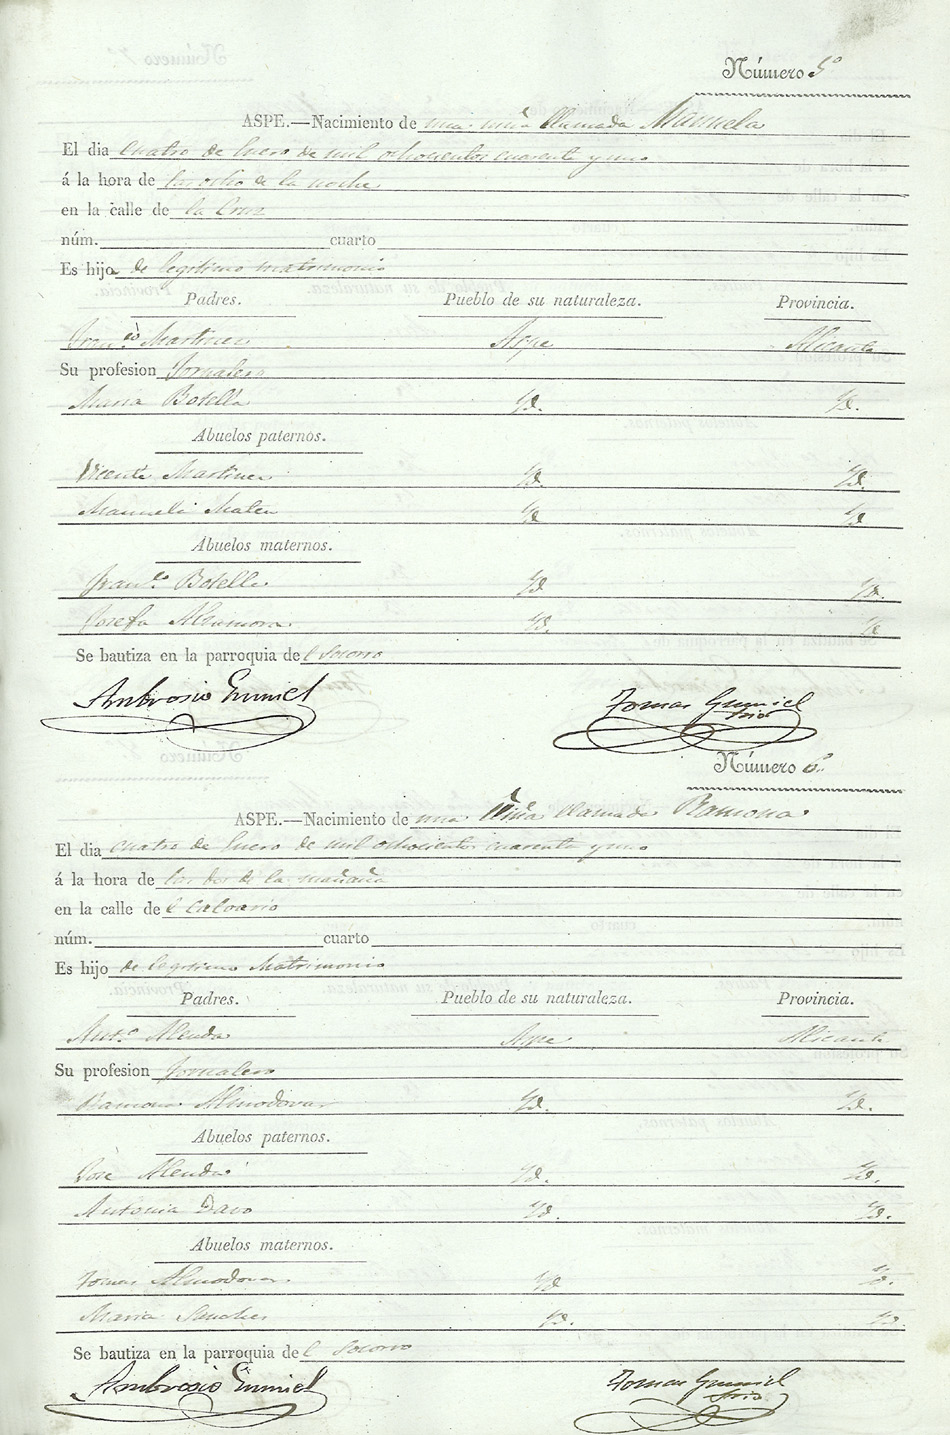 Número 5º
ASPE.—Nacimiento de una niña llamada Manuela
El dia cuatro de Enero de mil ochocientos cuarenta y uno
á la hora de las ocho de la noche
en la calle de la Cruz
núm. cuarto
Es hija de legitimo matrimonio
Padres. Pueblo de su naturaleza. Provincia.
Franco Martinez Aspe Alicante
Su profesion Jornalero
Maria Botella Yd. Yd.
Abuelos paternos.
Vicente Martinez Yd. Yd.
Manuela Mateu Yd Yd
Abuelos maternos.
Franco Botella Yd Yd.
Josefa Yd. Yd
Se bautiza en la parroquia del Socorro
Ambrosio Tomas
Srio
Número 6º
ASPE.—Nacimiento de una Niña llamada Ramona
El dia cuatro de Enero de mil ochocientos cuarenta y uno
á la hora de las dos de la mañana
en la calle del Calvario
núm. cuarto
Es hijo de legitimo Matrimonio
Padres. Pueblo de su naturaleza. Provincia.
Anto Alenda Aspe Alicante
Su profesion Jornalero
Ramona Almodovar Yd. Yd.
Abuelos paternos.
Jose Alenda Yd. Yd.
Antonia Davo Yd. Yd.
Abuelos maternos.
Tomas Almodovar Yd Yd.
Maria Sanchez Yd. Yd.
Se bautiza en la parroquia del Socorro
Ambrosio Tomas
Srio